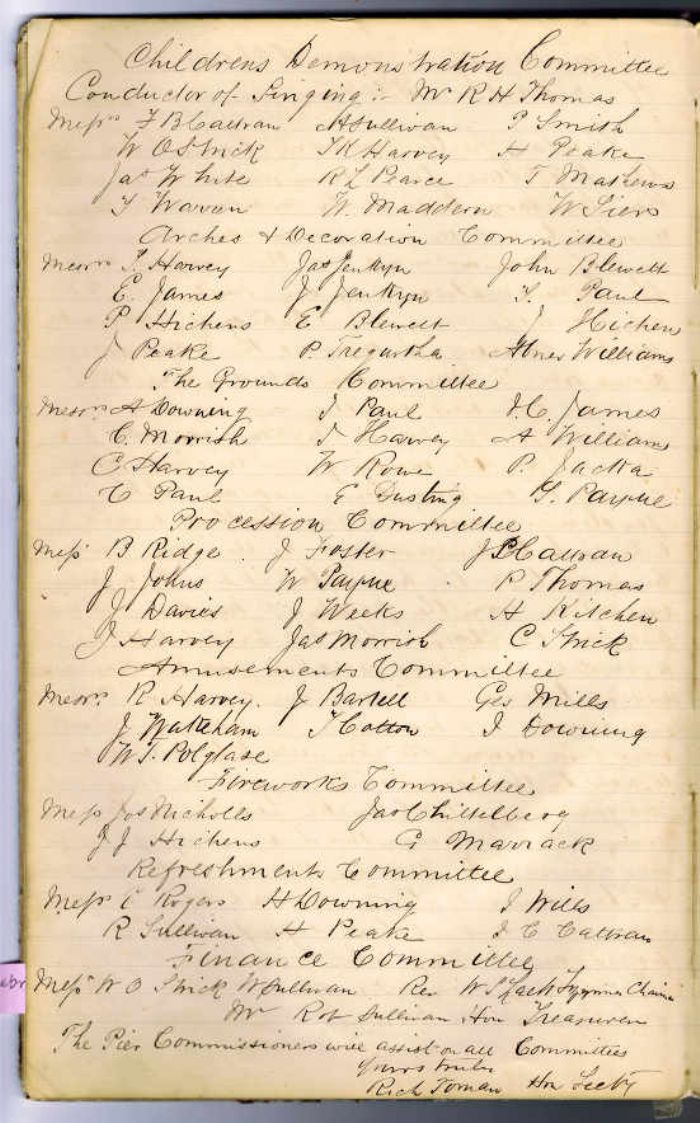 Childrens Demonstration Committee
Conductor of Singing :- Mr R H Thomas
Messrs F B Caltran H Sullivan P Smith
W O Strick T K Harvey H Peake
Jas White R L Pearce T Mathews
T Warren W. Maddern W Siers
Arches & Decoration Committee
Messrs T. Harvey Jas Jenkyn John Blewett
E. James J Jenkyn T. Paul
P Hichens E Blewett J Hichens
J Peake P. Tregurtha Abner Williams
The Grounds Committee
Messrs A Downing J Paul H. C. James
C. Morrish J Harvey A Williams
C Harvey W Rowe P. Jacka
C Paul E Dusting G. Payne
Procession Committee
Messrs B Ridge J Foster J P Caltran
J Johns W Payne P Thomas
J Davies J Weeks H Kitchen
J Harvey Jas Morrish C Strick
Amusements Committee
Messrs R Harvey. J Bartell Geo Mills
J Wakeham T Cotton J Downing
W. J. Polglase
Fireworks Committee
Messrs Jos Nicholls Jas Chittelberg
J J Hichens G Marrack
Refreshments Committee
Messrs C Rogers H Downing J Wills
R Sullivan H Peake J C Caltran
Finance Committee
Messrs W O Strick W Sullivan Rev W S Lach-Szyrma Chairm
Mr Robt Sullivan Hon Treasurer
The Pier Commissioners will assist on all Committees
Yours truly
Rich Toman Hon Secty